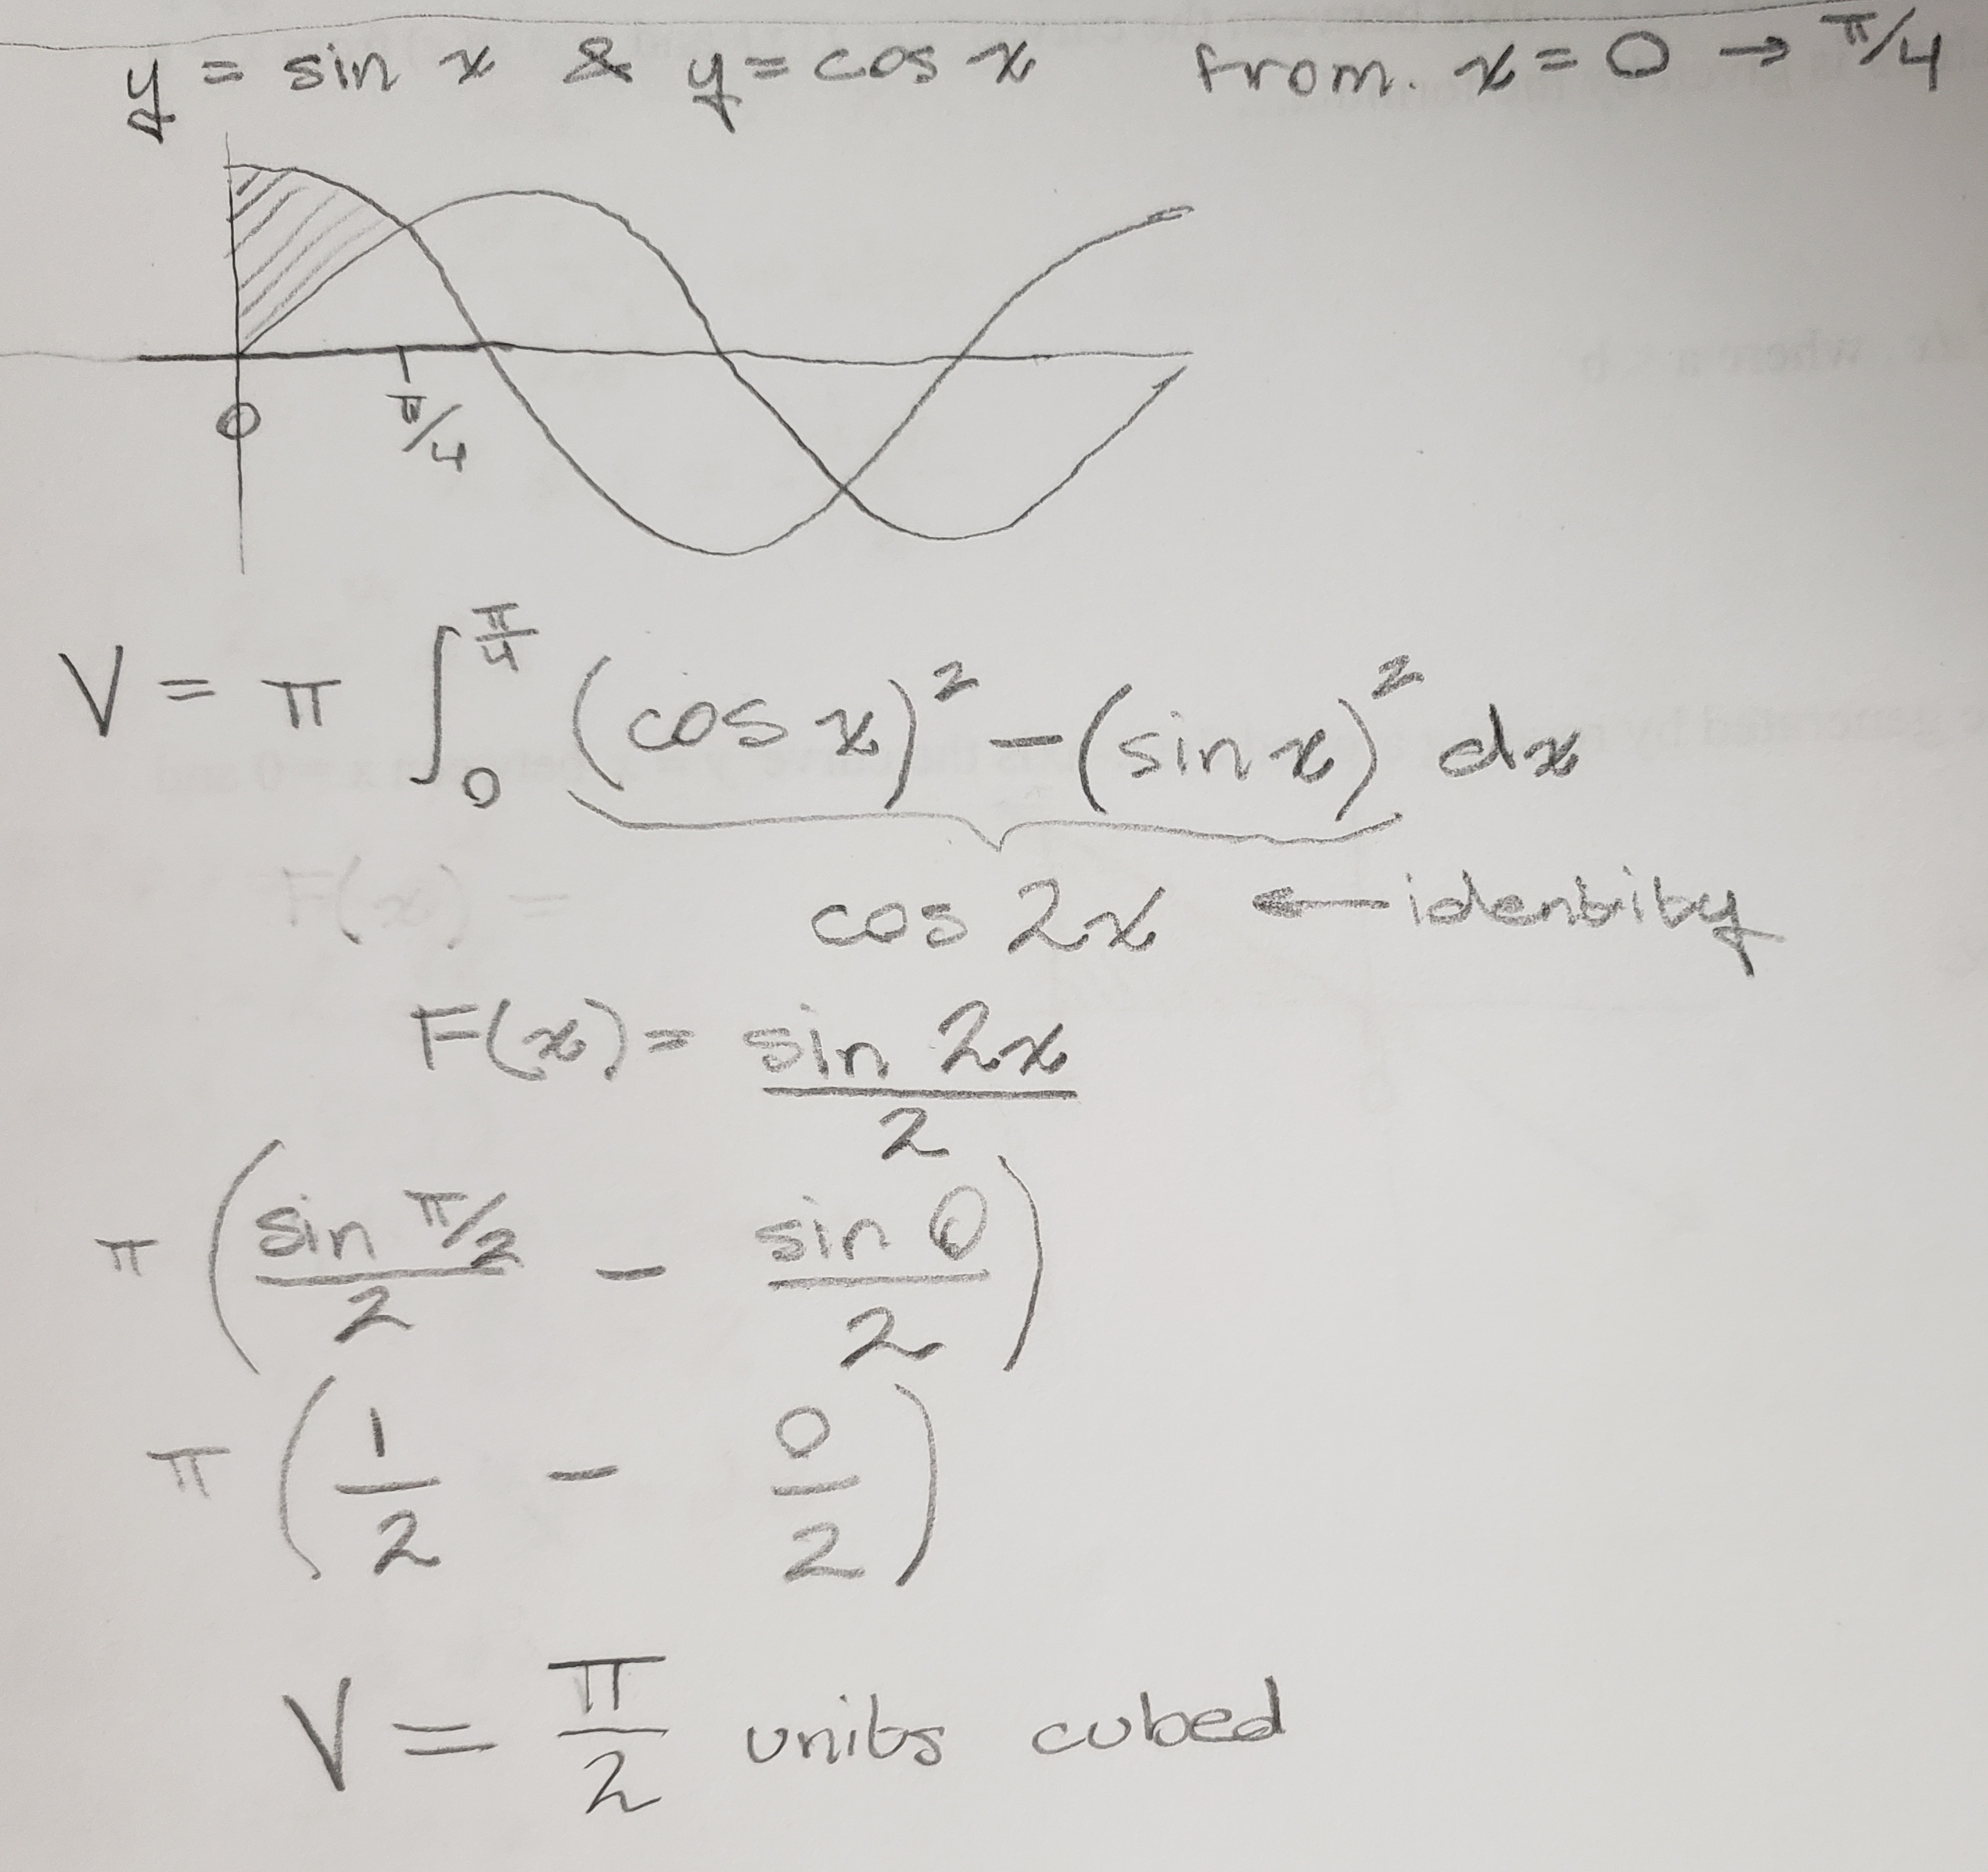 y = sin x & y = cos x from. x = 0 → π/4
0 π/4
V = π ∫₀^(π/4) (cos x)² - (sin x)² dx
cos 2x ← identity
F(x) = sin 2x / 2
π (sin π/2 / 2 - sin 0 / 2)
π (1/2 - 0/2)
V = π/2 units cubed